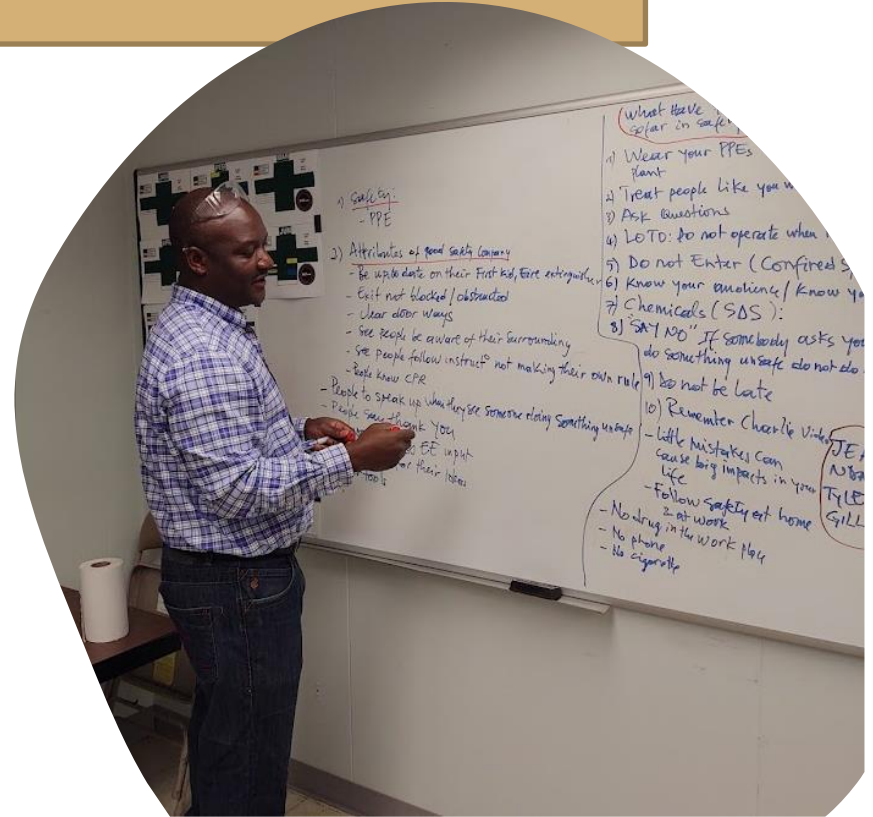 1) Safety:
- PPE
2) Attributes of good Safety Company
- Be up to date on their First Aid, Fire extinguisher
- Exit not blocked / obstructed
- Clear door ways
- See people be aware of their surrounding
- See people follow instruct not making their own rule
- People know CPR
- People to speak up when they see someone doing something unsafe
- People say thank you
EE input
their
tools
What Have
so far in safe
1) Wear your PPEs
plant
2) Treat people like you w
3) Ask Questions
4) LOTO: Do not operate when
5) Do not Enter (Confined S
6) Know your audience / Know yo
7) Chemicals (SDS):
8) "SAY NO" If somebody asks you
do something unsafe do not do
9) Do not be late
10) Remember Charlie Video
- Little Mistakes Can
cause big impacts in your
life
- Follow safety at home
& at work
- No drug in the work place
- No phone
- No cigarette
JE
TYLE
GILL